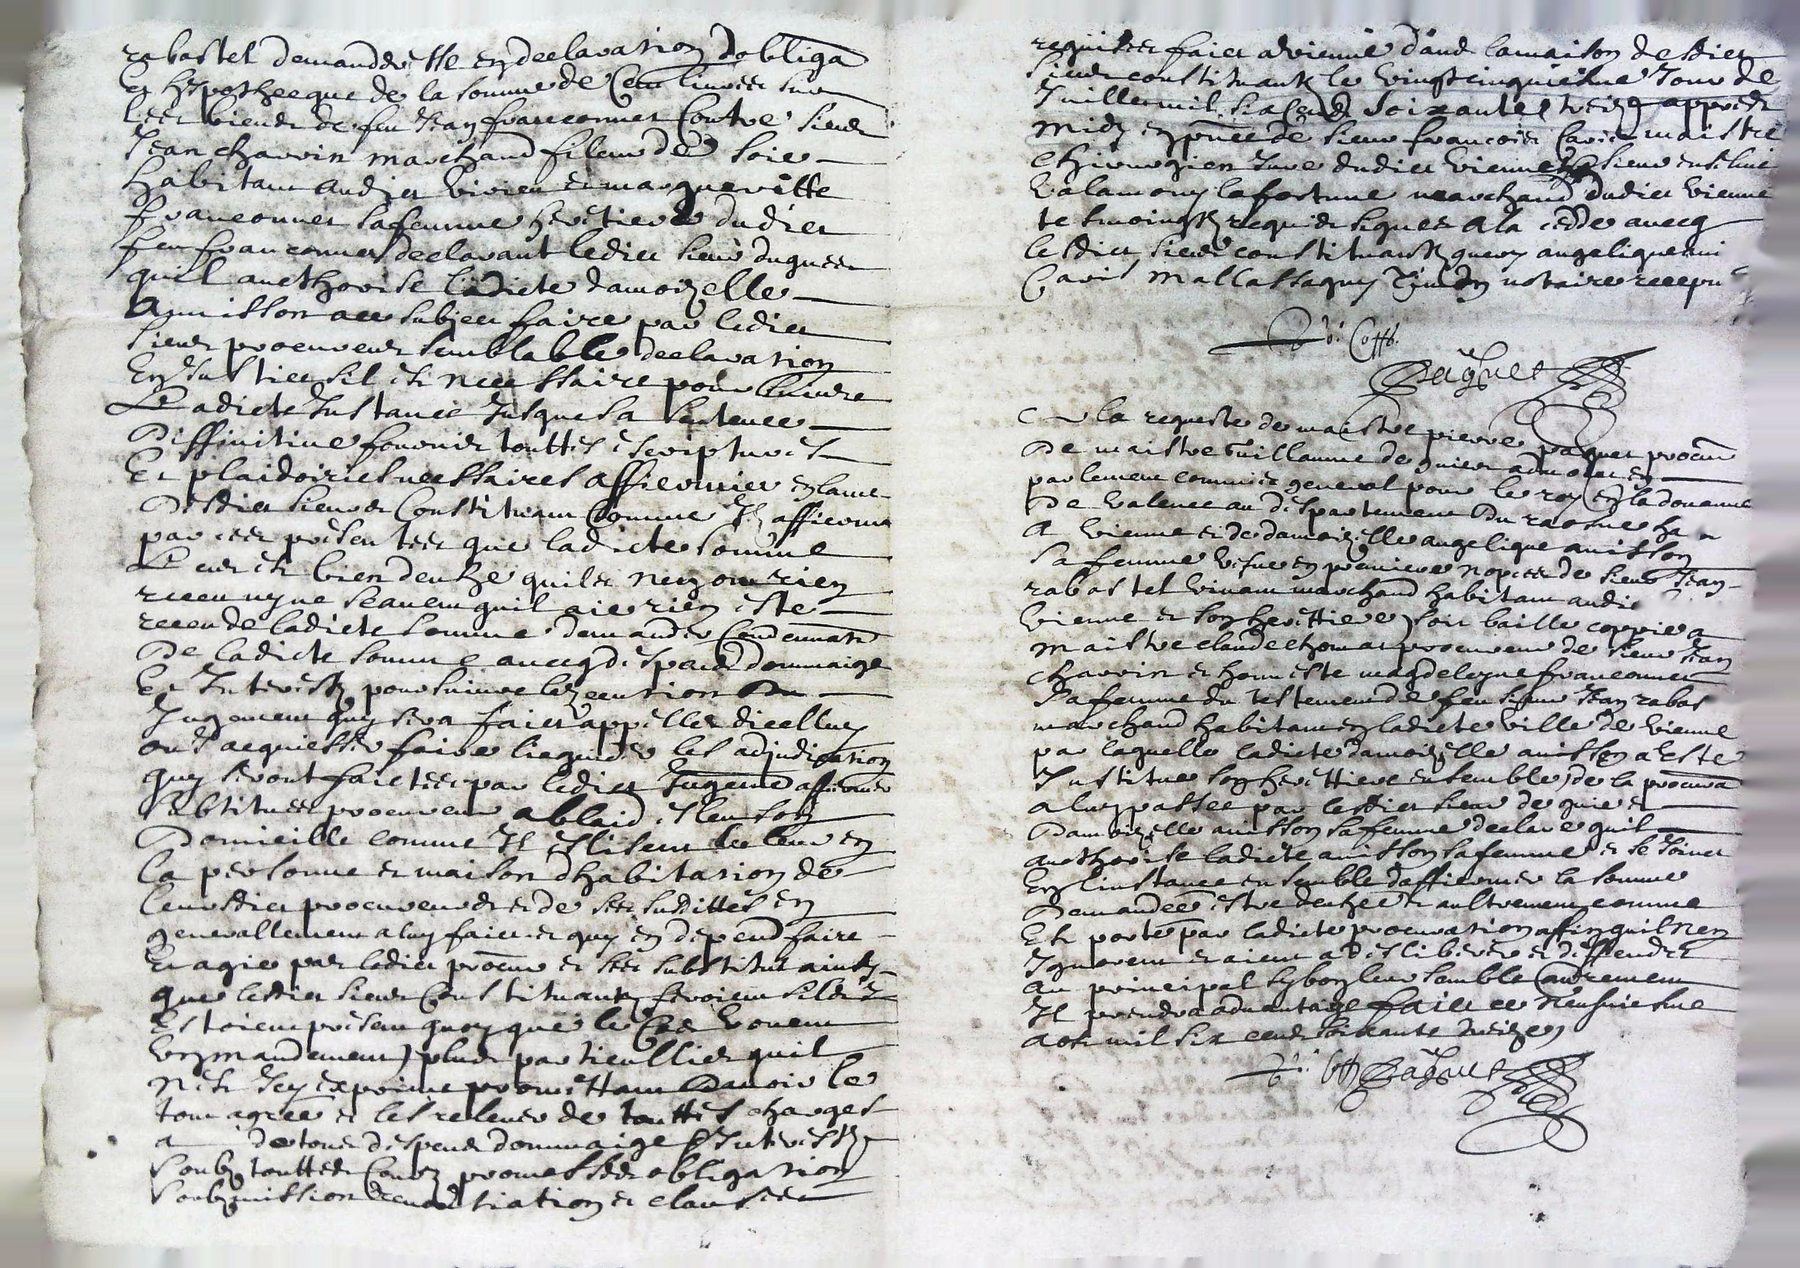 rabostel demanderesse en declaration dobliga
et hypothecque de la somme de Cent livres sur
les biens de feu Jean franconnet Contre sieur
Jean charvin marchand fileur de soie
habitant audict vienne et margueritte
franconnet sa femme heretiere dudict
feu franconnet declarant ledict sieur
quil aucthorise ladicte damoizelle
Anisson au subject faire par ledict
sieur procureur semblable declaration
En Justice sil est necessaire poursuivre
Ladicte Instance Jusques a sentence
Diffinitive fournir touttes escriptures
Et plaidoiries necessaires affiermer en lame
Desdict sieurs Constituant Comme Ils afferment
par ces presentes que ladicte somme
Leur est bien deuhe quils nen ont rien
receu ny ne scavent quil aie rien este
receu de ladicte somme demander Condemnation
De ladicte somme avecq despens dommaige
Et Interestz poursuivre lexecution Du
Jugement quy sera faict appeller dicelluy
ou Dacquiesser faire les adjudication
quy seront faictes par ledict Jugement
substituer procureur en son
Domicille comme Ils Elisent le leur en
la personne et maison dhabitation de
leurdict procureur et de ses substittues en
generallement a luy faict et quy en depend faire
Et agir par ledict procureur et ses substitut ainsy
que lesdict sieurs Constituantz feroient silz
Estoient presents quoy que le Cas
un mandement plus particullier quil
nest Icy exprime promettant Davoir le
tout agree et les relever de touttes charges
a de tous despens dommaige Interestz
soubz touttes Cours promesses obligation
soubzmission renontiation et clauses
requises faict a vienne dans la maison desdict
sieurs constituantz le vingtcinquiesme Jour de
Juillet mil six cend soixante treize appres
midy en presence de sieur francois Cavis maistre
chirurgien Jure dudict vienne et sieur
lafortune marchand dudict vienne
tesmoingtz requis signes a la cedde avecq
lesdict sieurs constituantz angelique
Cavis notaire recepu
Coppie
Paquet
A la requeste de maistre pierre paquet procureur
De maistre Guillaume advocat en
parlement commis general pour le roy en la douanne
De valence au despartement Du
A vienne et de damoizelle angelique anisson
sa femme vefve en premiere nopces de sieur Jean
rabostel vivant marchand habitant audict
vienne et son herettiere soit baille coppie a
maistre claude procureur de sieur Jean
charvin et honneste magdeleyne franconnet
sa femme du testement de feu sieur Jean rabos
marchand habitant en ladicte ville de vienne
par laquelle ladicte damoizelle anisson a Este
Instituee son herettiere ensemble de la procura
a luy passee par lesdict sieur et
Damoizelle anisson sa femme declare quil
aucthorise ladicte anisson sa femme et se Joinct
En linstance ensemble daffiermer la somme
Demandee estre deuhee et aultrement comme
Est porte par ladicte procuration affin quil nen
Ignorent et aient a deliberer et deffendre
au principal sy bon leur semble Aultrement
Il prendra advantaige faict ce neufviesme
aost mil six cend soixante treize
Paquet